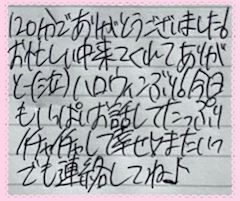 120分ありがとうございました!
お忙しい中来てくれてありが
と〜(泣)ハロウィンぶり!今日
もいっぱいお話してたっぷり
イチャイチャして幸せ♡またいつ
でも連絡してね♪